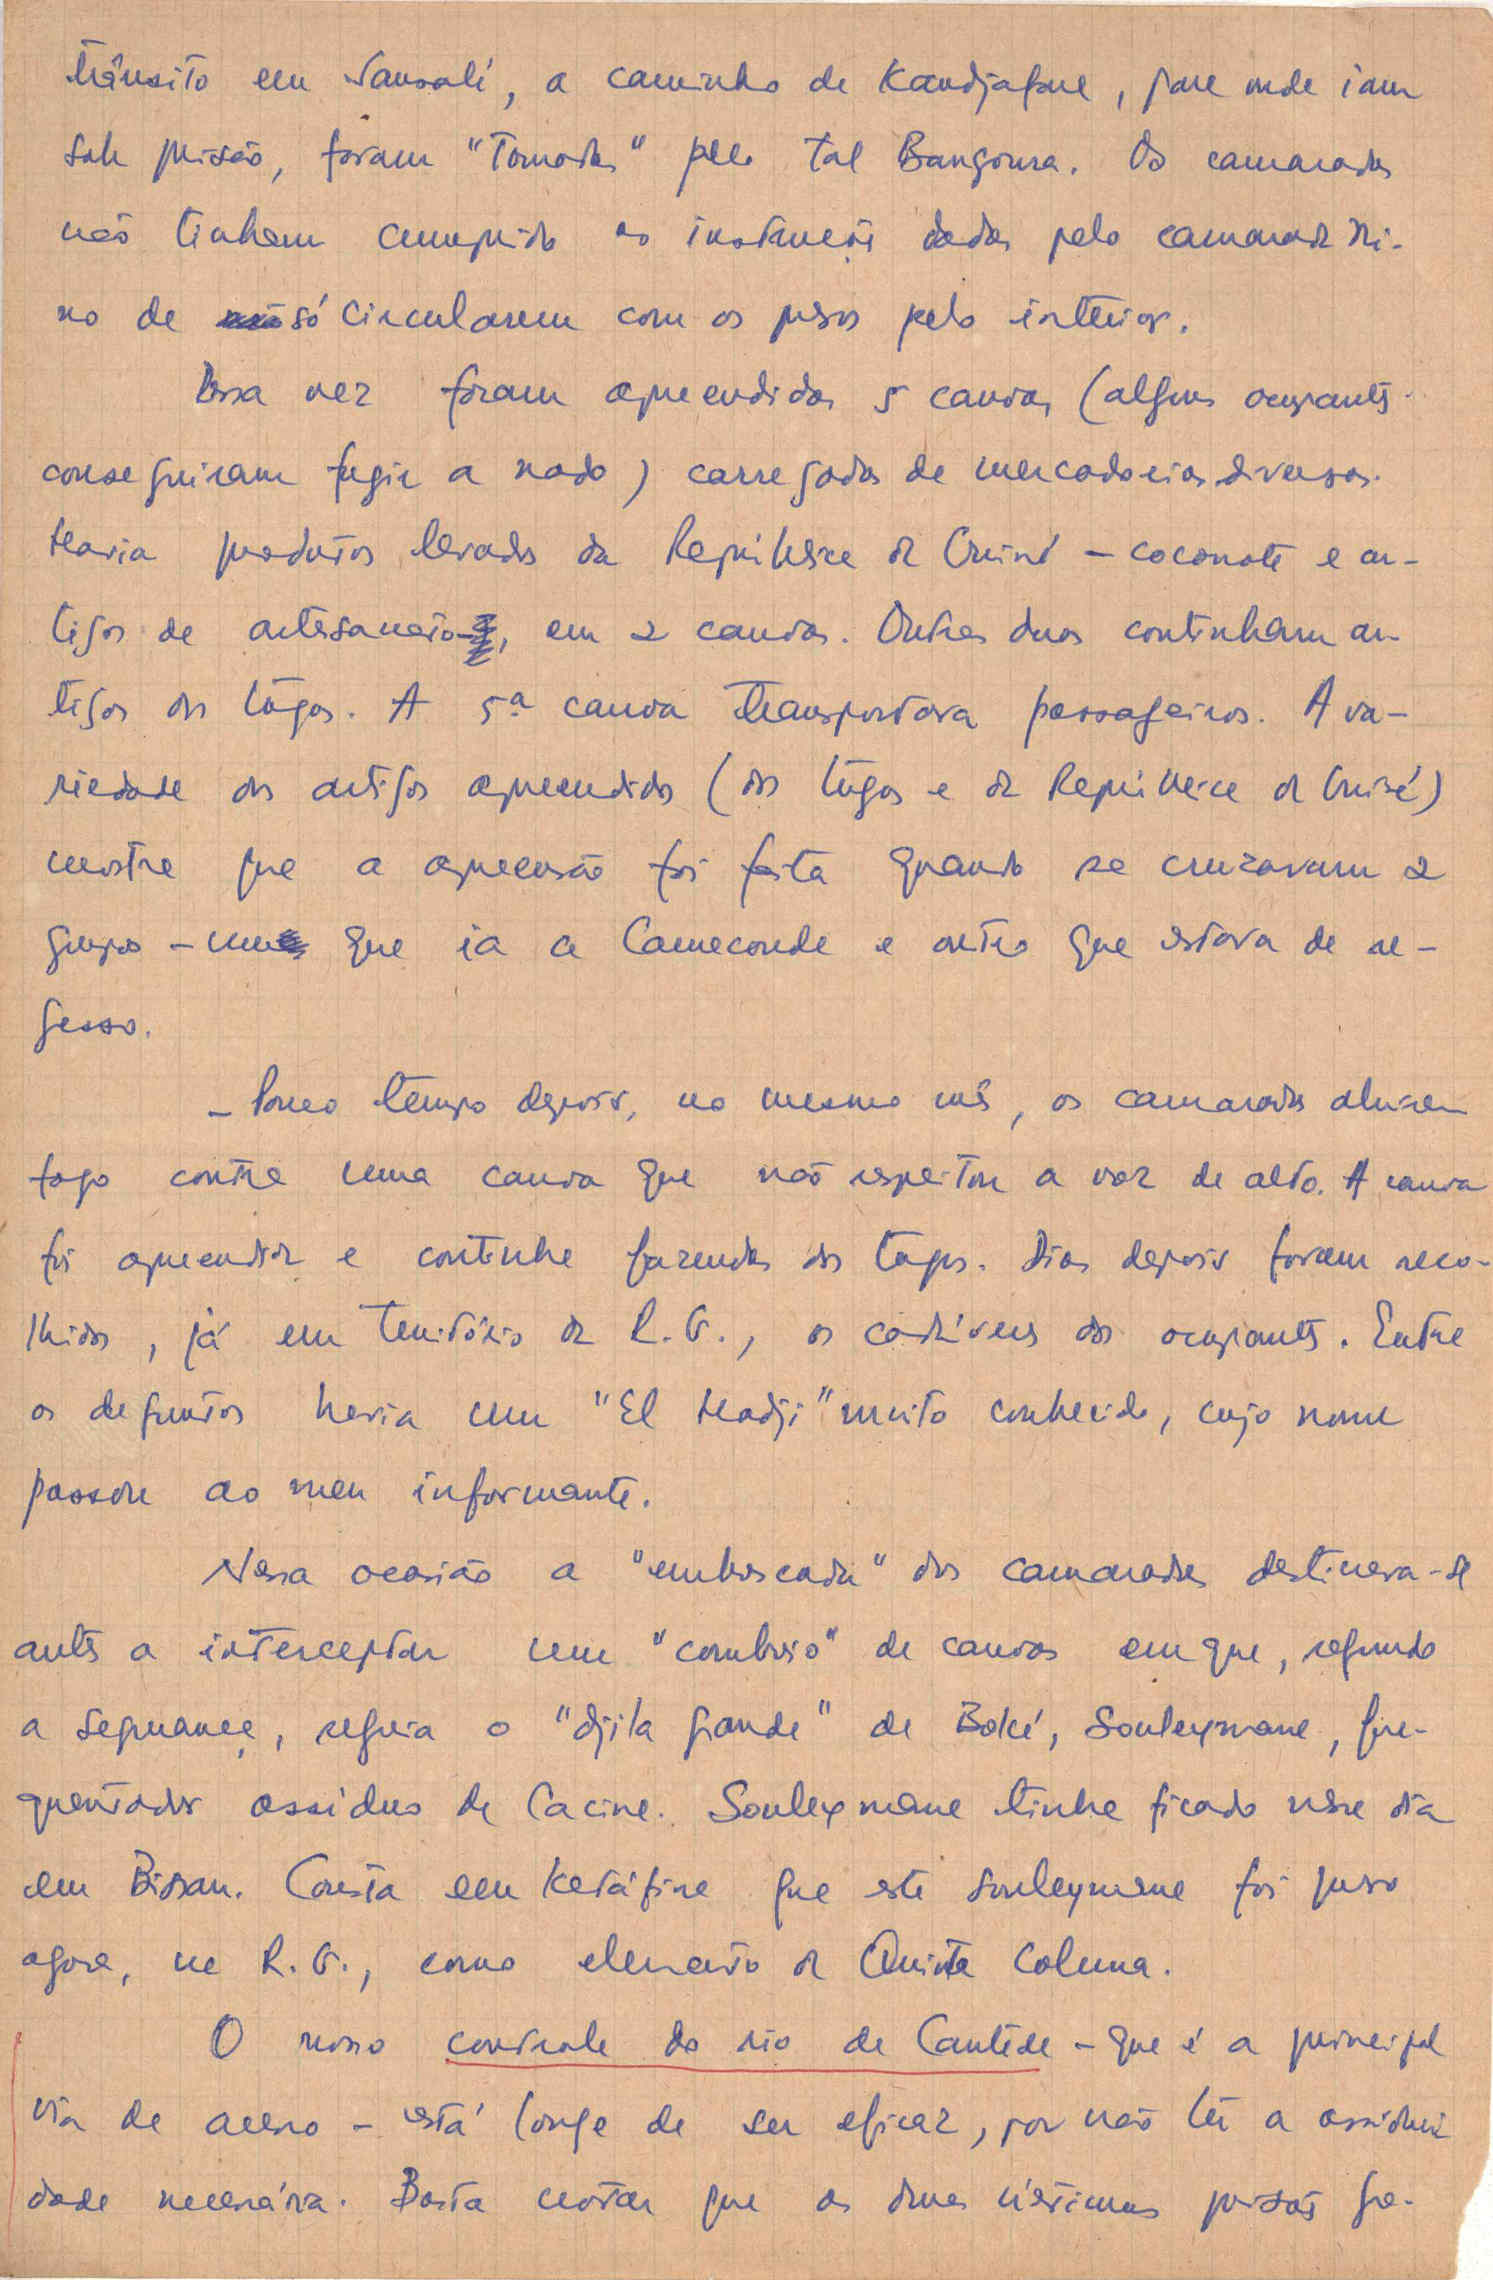 trânsito em Sansalé, a caminho de Kandjafare, para onde iam
sob prisão, foram "tomados" pelo tal Bangoura. Os camaradas
não tinham cumprido as instruções dadas pelo camarada Ni-
no de só circularem com os presos pelo interior.
Dessa vez foram apreendidas 5 canoas (alguns ocupantes
conseguiram fugir a nado) carregadas de mercadorias diversas.
Havia produtos levados da República da Guiné - coconote e ar-
tigos de artesanato, em 2 canoas. Outras duas continham ar-
tigos dos tugas. A 5ª canoa transportava passageiros. A va-
riedade dos artigos apreendidos (dos tugas e da República da Guiné)
mostra que a apreensão foi feita quando se cruzavam 2
grupos - um que ia a Cameconde e outro que estava de re-
gresso.
- Pouco tempo depois, no mesmo mês, os camaradas abriram
fogo contra uma canoa que não respeitou a voz de alto. A canoa
foi apreendida e continha fazendas dos tugas. Dias depois foram reco-
lhidos, já em território da R.G., os cadáveres dos ocupantes. Entre
os defuntos havia um "El Hadji" muito conhecido, cujo nome
passou ao meu informante.
Nessa ocasião a "emboscada" dos camaradas destinava-se
antes a interceptar um "comboio" de canoas em que, segundo
a segurança, seguia o "djila grande" de Boké, Souleymane, fre-
quentador assíduo de Cacine. Souleymane tinha ficado nesse dia
em Bissau. Consta em Ketáfine que este Souleymane foi preso
agora, na R.G., como elemento da Quinta Coluna.
O nosso controle do rio de Cantede - que é a principal
via de acesso - está longe de ser eficaz, por não ter a assidui
dade necessária. Basta notar que as duas últimas prisões fo-